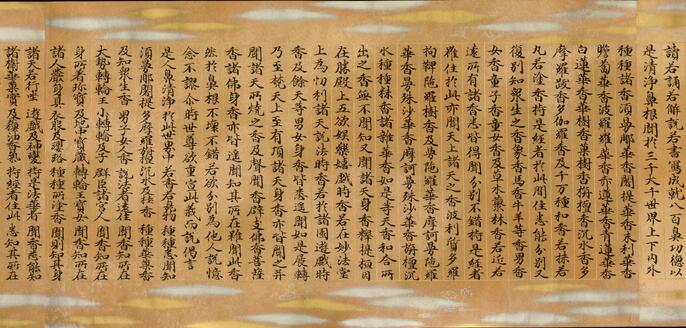 讀若誦若解說若書寫成就八百鼻功德以
是清淨鼻根聞於三千大千世界上下內外
種種諸香須曼那華香闍提華香末利華香
瞻蔔華香波羅羅華香赤蓮華香青蓮華香
白蓮華香華樹香菓樹香栴檀香沉水香多
摩羅跋香多伽羅香及千万種和香若抹若
丸若塗香持是經者於此間住悉能分別又
復別知衆生之香象香馬香牛羊等香男香
女香童子香童女香及草木叢林香若近若
遠所有諸香悉皆得聞分別不錯持是經者
雖住於此亦聞天上諸天之香波利質多羅
拘鞞陁羅樹香及曼陁羅華香摩訶曼陁羅
華香曼殊沙華香摩訶曼殊沙華香栴檀沉
水種種抹香諸雜華香如是等天香和合所
出之香無不聞知又聞諸天身香釋提桓因
在勝殿上五欲娛樂嬉戲時香若在妙法堂
上為忉利諸天說法時香若於諸園遊戲時
香及餘天等男女身香皆悉遙聞如是展轉
乃至梵天上至有頂諸天身香亦皆聞之并
聞諸天所燒之香及聲聞香辟支佛香菩薩
香諸佛身香亦皆遙聞知其所在雖聞此香
然於鼻根不壞不錯若欲分別為他人說憶
念不謬尒時世尊欲重宣此義而說偈言
是人鼻清淨 於此世界中 若香若臭物 種種悉聞知
須曼那闍提 多摩羅栴檀 沉水及桂香 種種華菓香
及知衆生香 男子女人香 說法者遠住 聞香知所在
大勢轉輪王 小轉輪及子 群臣諸宮人 聞香知所在
身所著珍寶 及地中寶藏 轉輪王寶女 聞香知所在
諸人嚴身具 衣服及瓔珞 種種所塗香 聞則知其身
諸天若行坐 遊戲及神變 持是法華者 聞香悉能知
諸樹華菓實 及蘇油香氣 持經者住此 悉知其所在